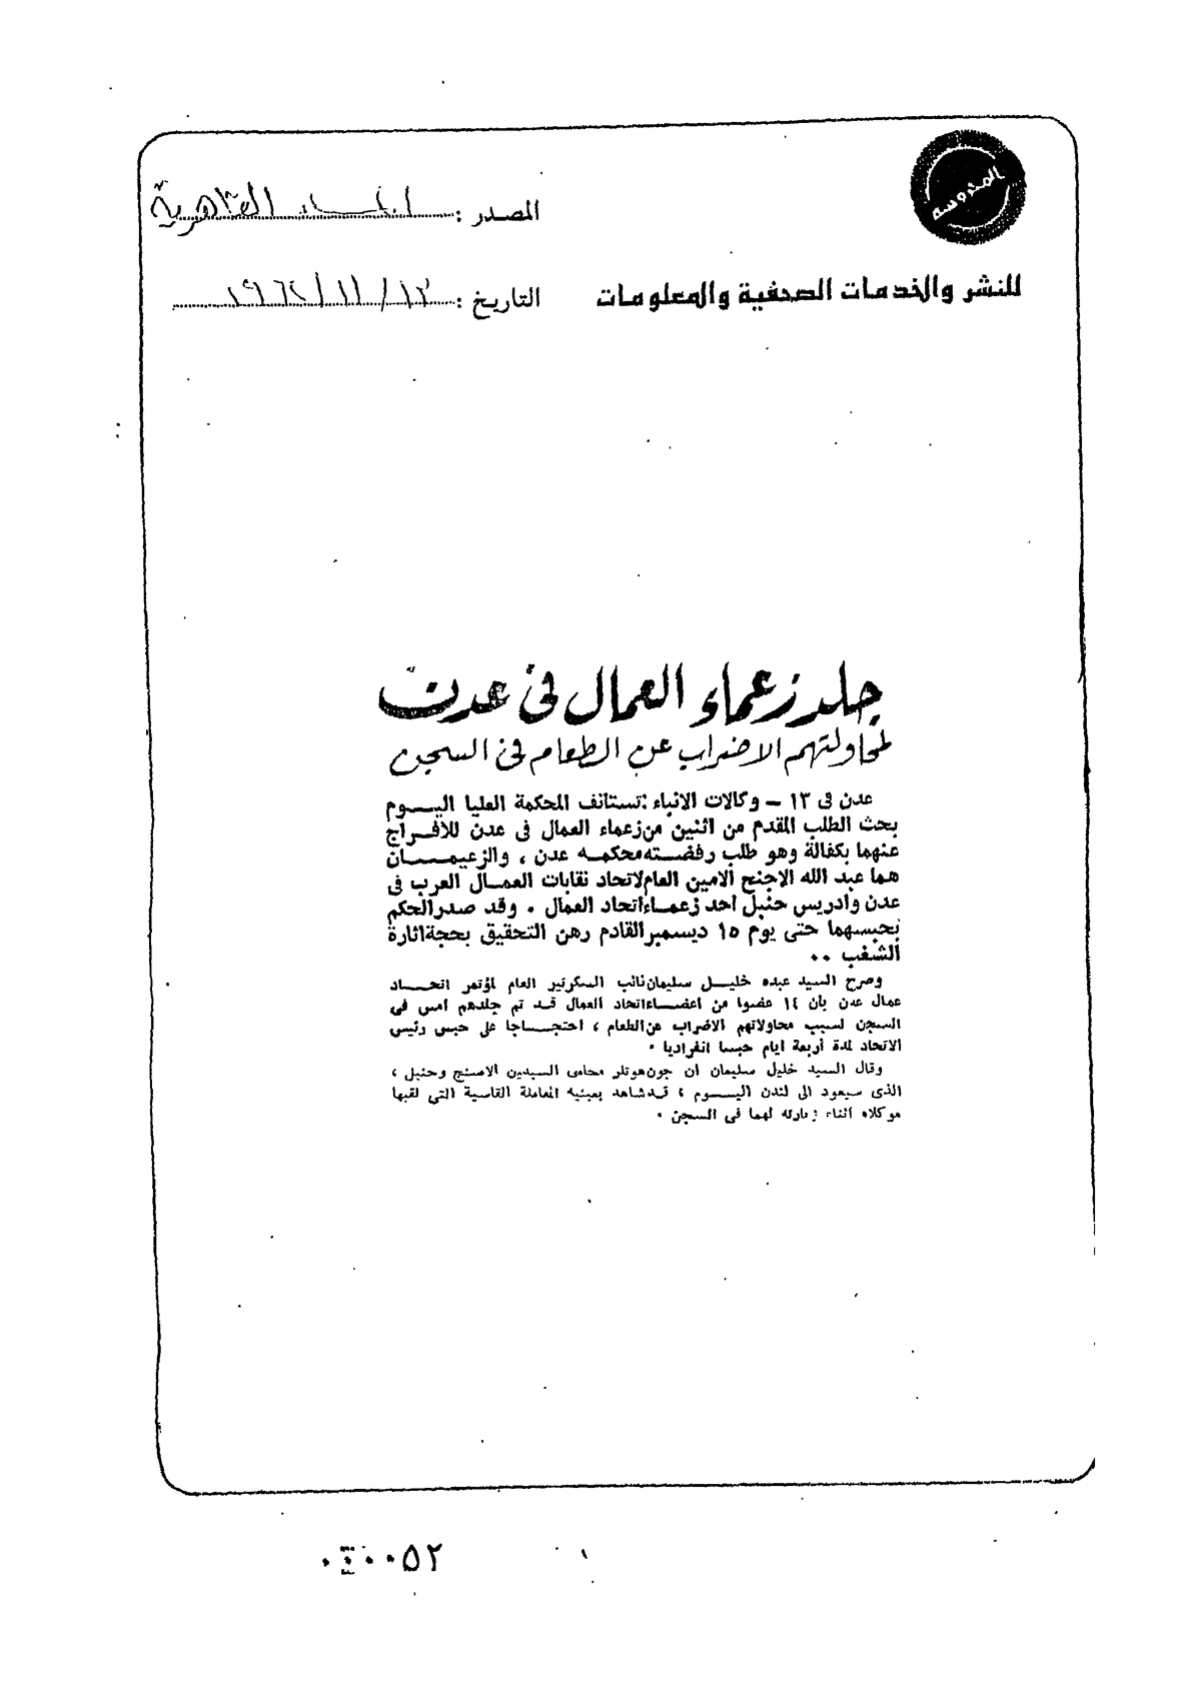 المحروسة
المصدر : المساء القاهرية
للنشر والخدمات الصحفية والمعلومات
التاريخ : ١٣ / ١١ / ١٩٦٢
جلد زعماء العمال فى عدن
لمحاولتهم الاضراب عن الطعام فى السجن
عدن فى ١٣ - وكالات الانباء : تستانف المحكمة العليا اليوم
بحث الطلب المقدم من اثنين من زعماء العمال فى عدن للافراج
عنهما بكفالة وهو طلب رفضته محكمه عدن ، والزعيمان
هما عبد الله الاجنح الامين العام لاتحاد نقابات العمال العرب فى
عدن وادريس حنبل احد زعماء اتحاد العمال . وقد صدر الحكم
بحبسهما حتى يوم ١٥ ديسمبر القادم رهن التحقيق بحجة اثارة
الشغب ..
وصرح السيد عبده خليل سليمان نائب السكرتير العام لمؤتمر اتحاد
عمال عدن بان ١٤ عضوا من اعضاء اتحاد العمال قد تم جلدهم امس فى
السجن لسبب محاولاتهم الاضراب عن الطعام ، احتجاجا على حبس رئيس
الاتحاد لمدة أربعة ايام حبسا انفراديا .
وقال السيد خليل سليمان ان جون هوتلر محامى السيدين الاصنج وحنبل ،
الذى سيعود الى لندن اليوم ، قد شاهد بعينيه المعاملة القاسية التي لقيها
موكلاه اثناء زيارته لهما فى السجن .